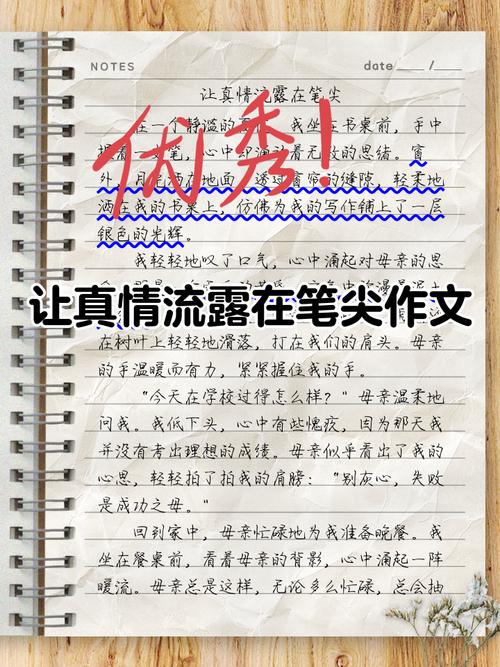 NOTES
date /
让真情流露在笔尖
优秀!
在一个静谧的夏 我坐在书桌前,手中
笔,心中却涌 着无数的思绪。窗
外,月光洒在地面,透过窗帘的缝隙,轻柔地
洒在我的书桌上,仿佛为我的写作铺上了一层
银色的光辉。
我轻轻地叹了口气,心中涌起对母亲的思
让真情流露在笔尖作文
在树叶上轻轻地滑落,打在我们的肩头。母亲
的手温暖而有力,紧紧握住我的手。
“今天在学校过得怎么样?”母亲温柔地
问我。我低下头,心中有些愧疚,因为那天我
并没有考出理想的成绩。母亲似乎看出了我的
心思,轻轻拍了拍我的肩膀:“别灰心,失败
是成功之母。”
回到家中,母亲忙碌地为我准备晚餐。我
坐在餐桌前,看着母亲的背影,心中涌起一阵
暖流。母亲总是这样,无论多么忙碌,总会抽